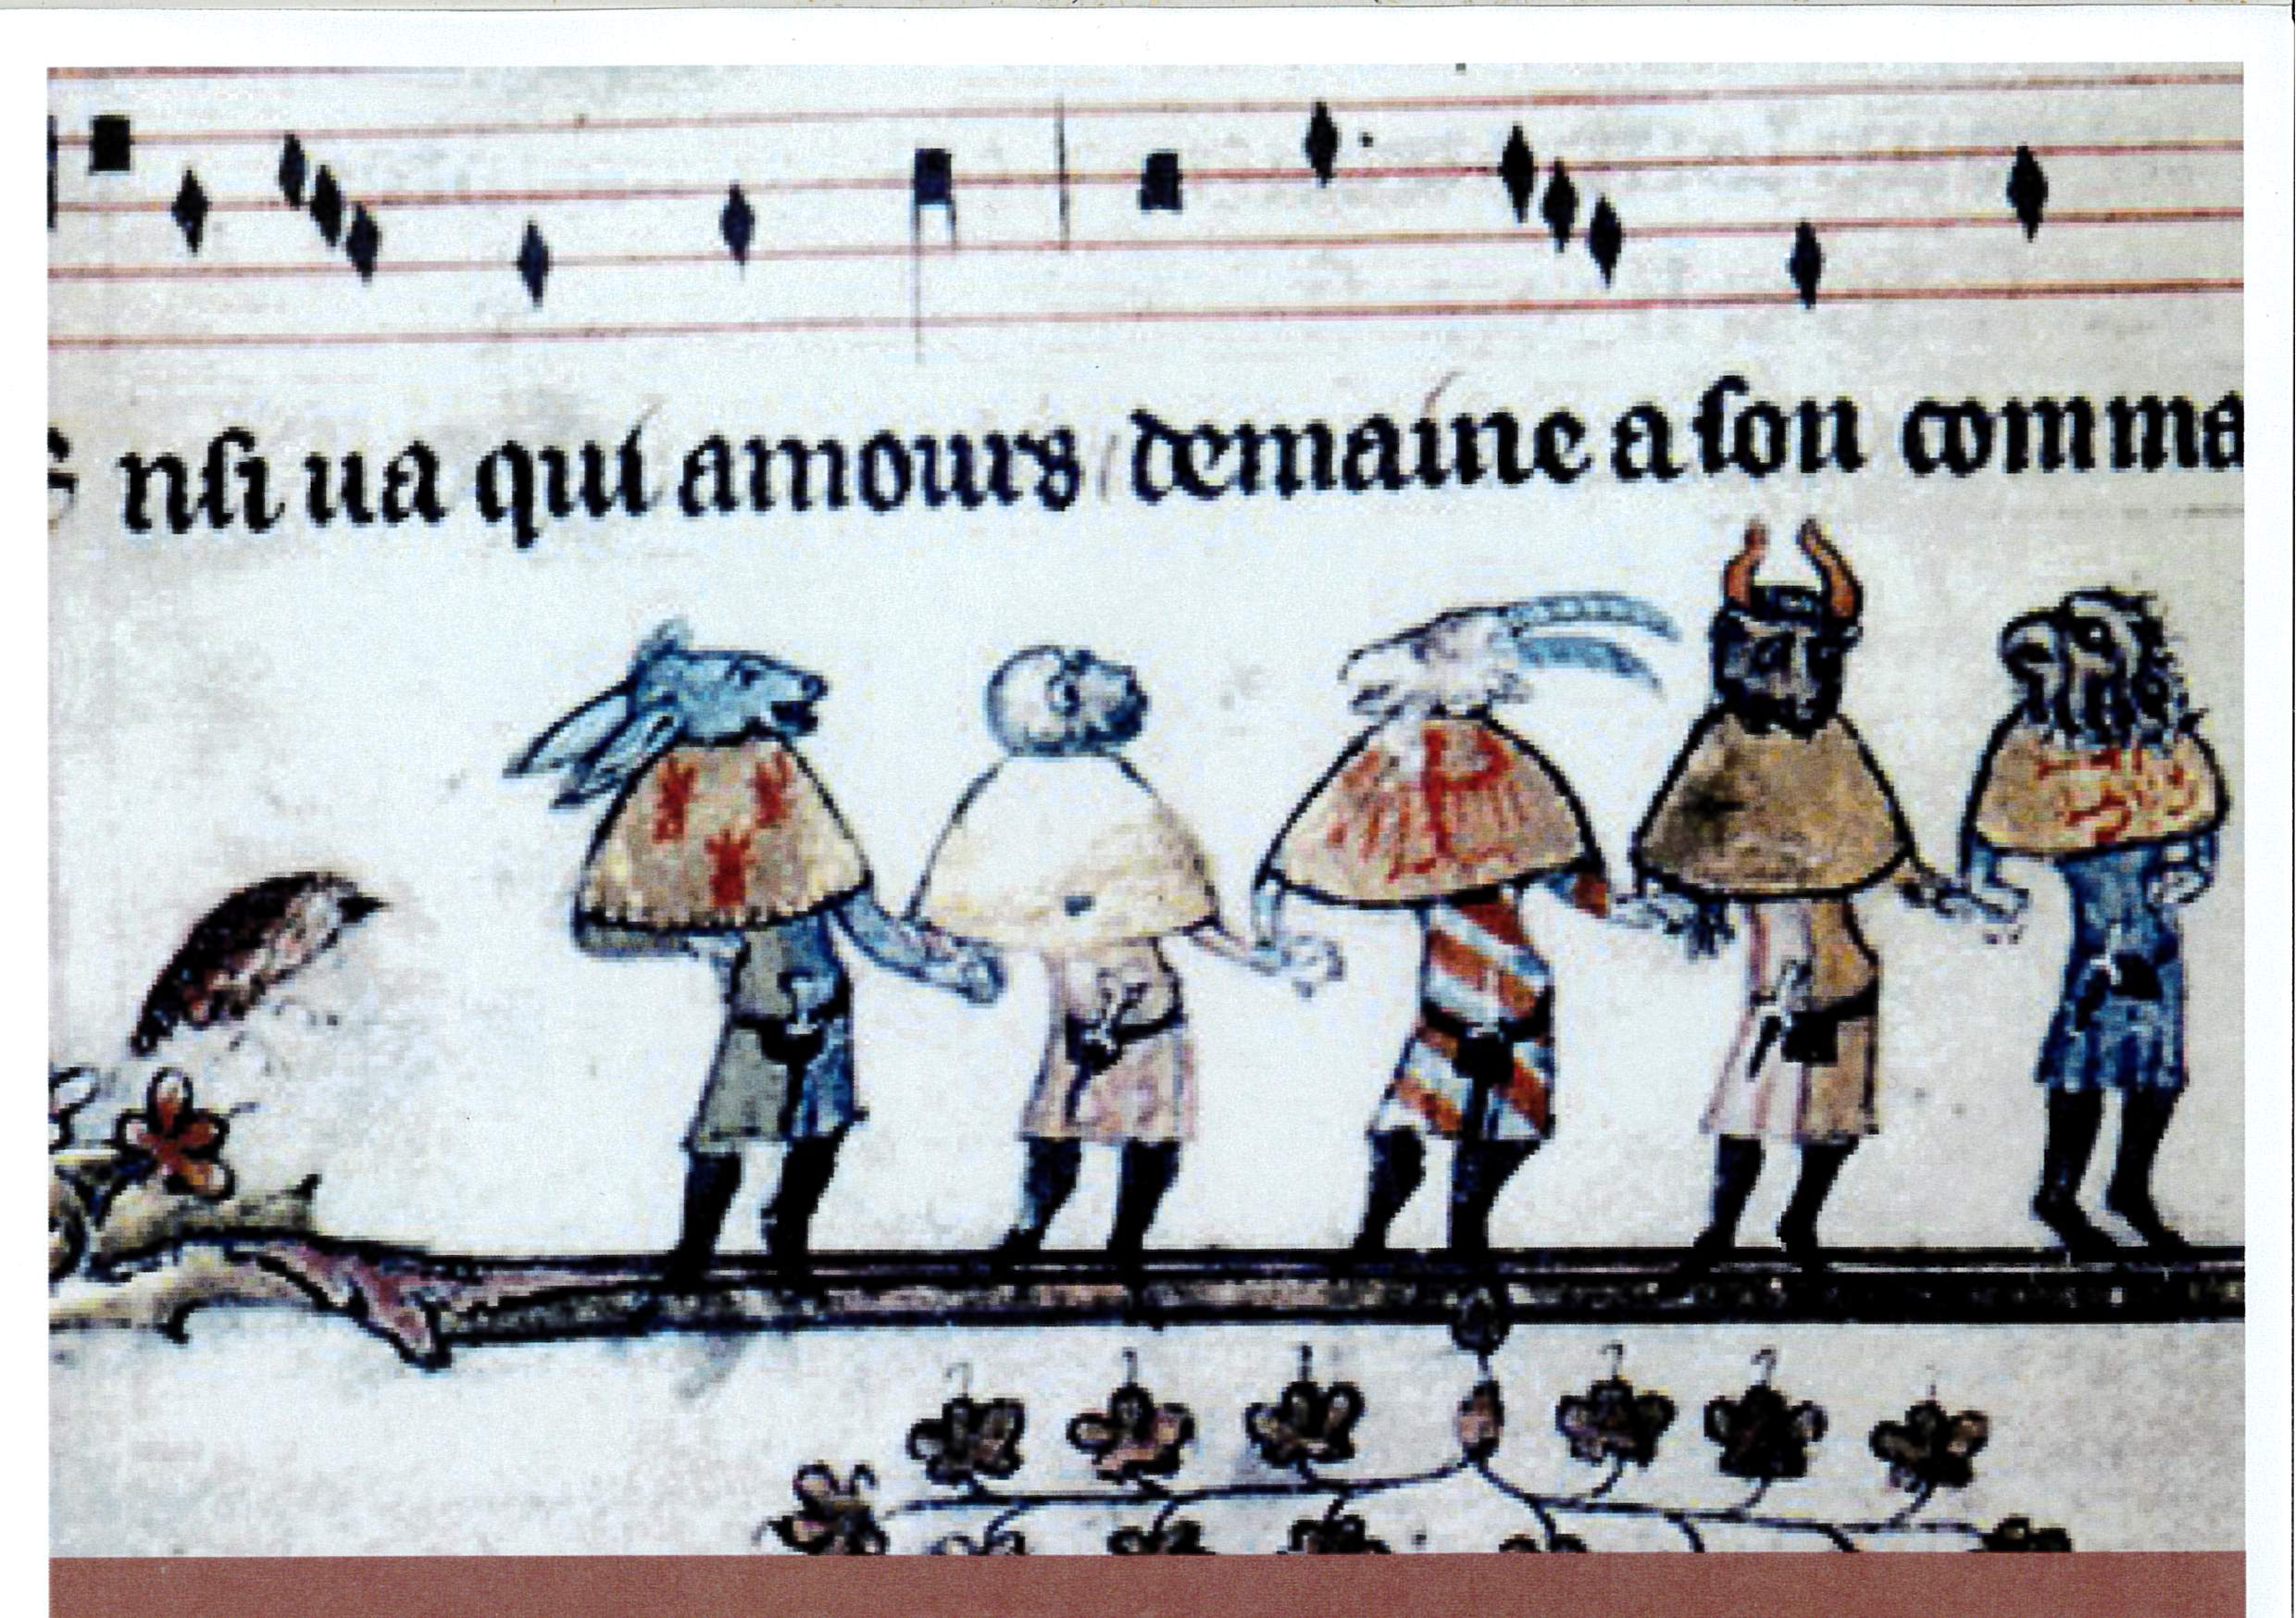 nsi ua qui amours demaine a son comma